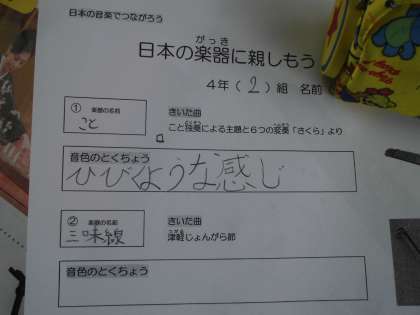 日本の音楽でつながろう
がっき
日本の楽器に親しもう
4年(2)組 名前
① 楽器の名前
こと
きいた曲
こと独奏による主題と6つの変奏「さくら」より
音色のとくちょう
ひびくような感じ
② 楽器の名前
三味線
きいた曲
津軽じょんがら節
音色のとくちょう